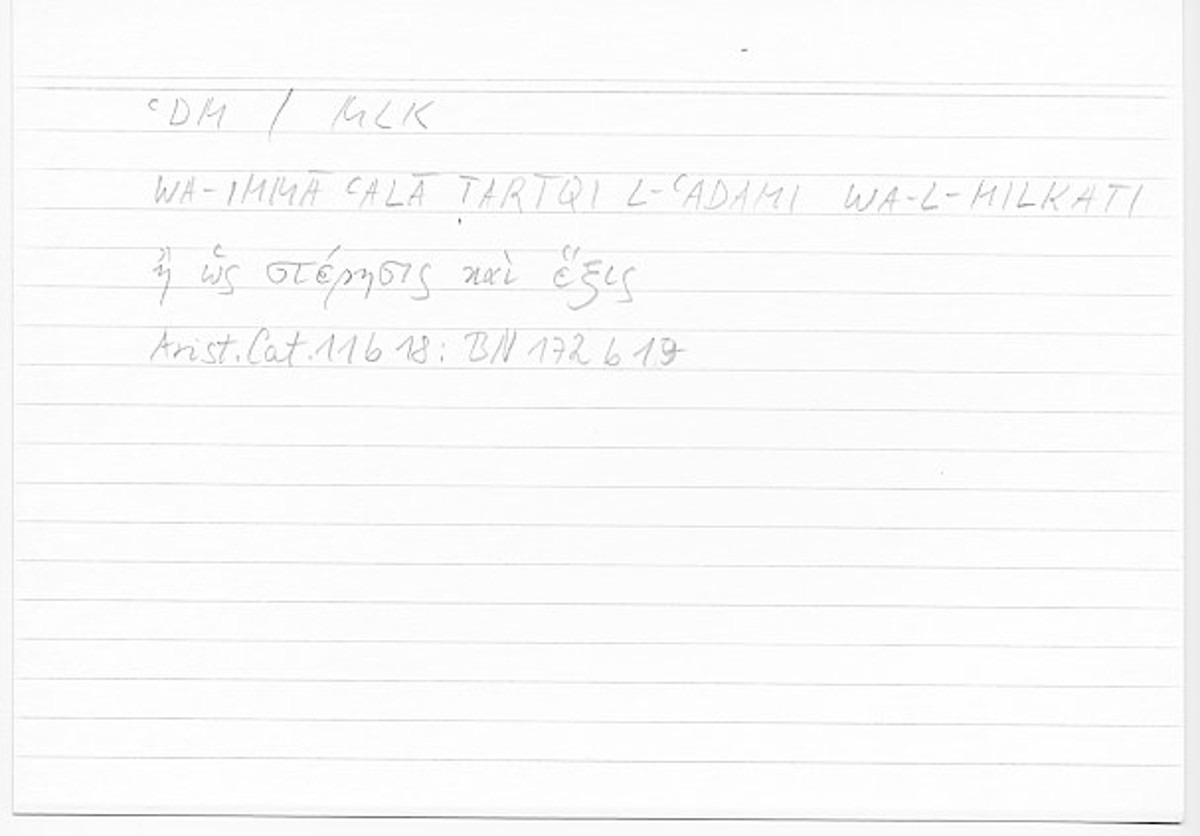 ᶜDM / MLK
WA-IMMĀ ᶜALĀ ṬARĪQI L-ᶜADAMI WA-L-MILKATI
ἢ ὡς στέρησις καὶ ἕξις
Arist. Cat. 11 b 18: BN 172 b 19